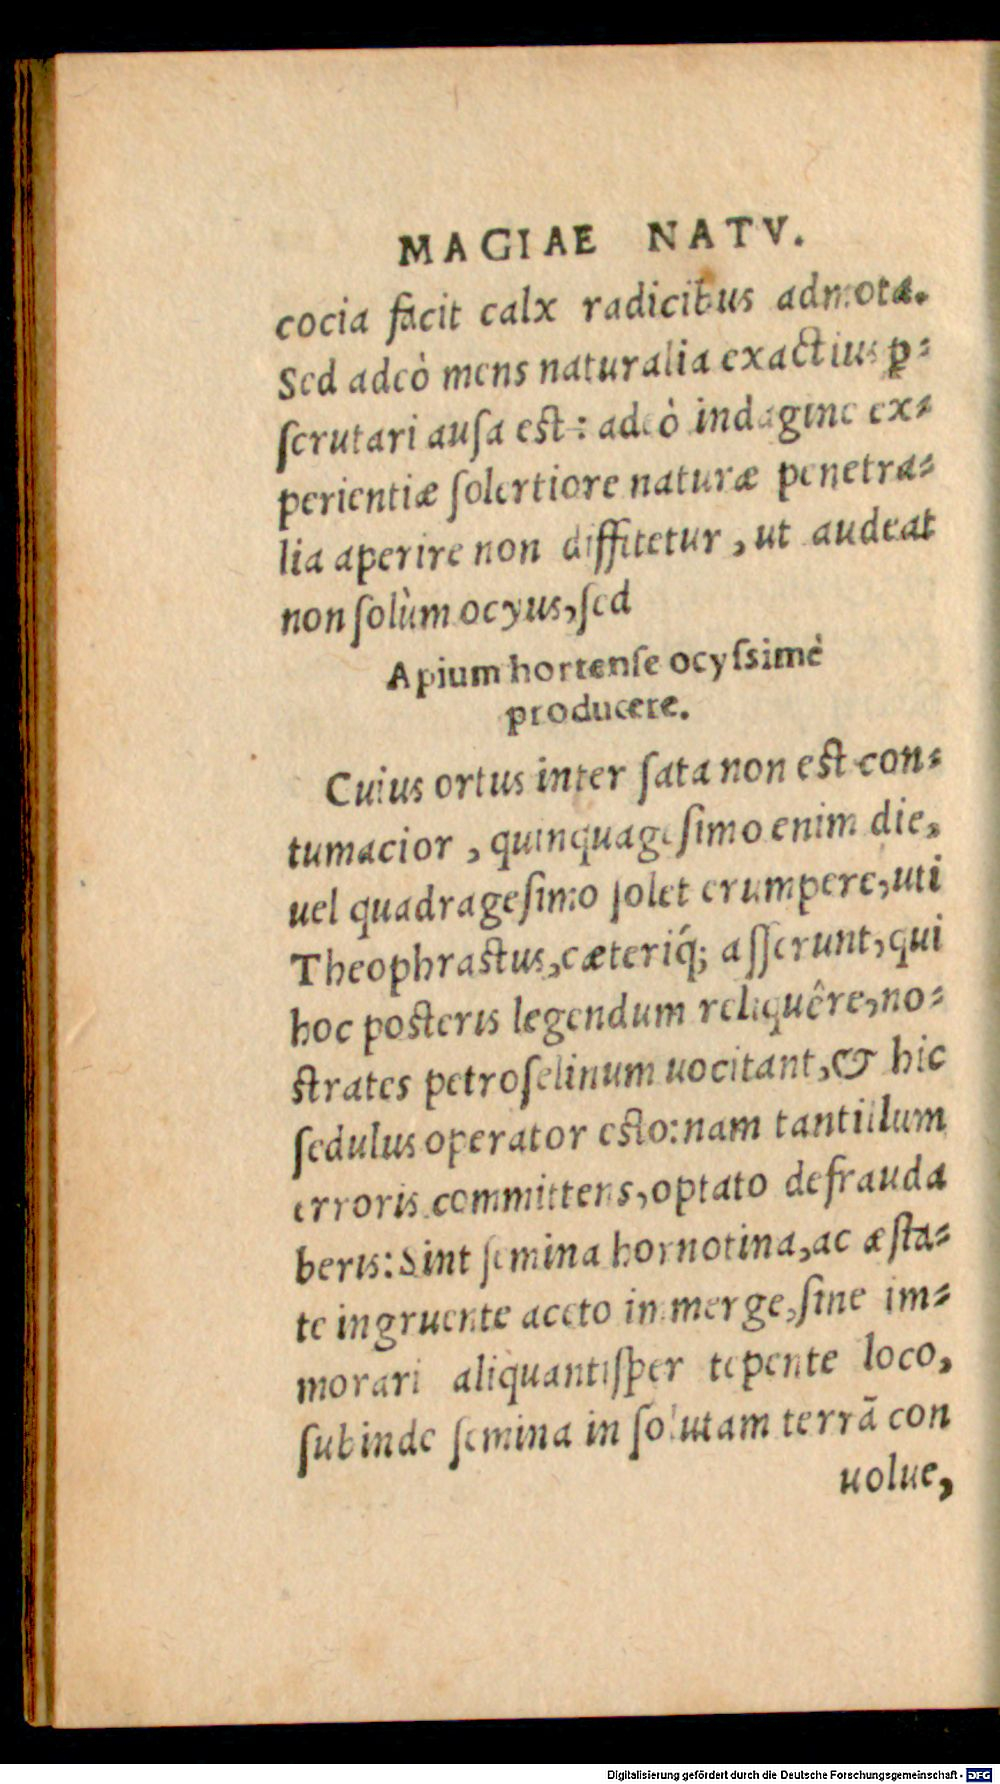 MAGIAE NATV.
cocia facit calx radicibus admota.
Sed adeò mens naturalia exactius ꝑ⸗
ſcrutari auſa est: adeò indagine ex⸗
perientiæ ſolertiore naturæ penetra⸗
lia aperire non diffitetur, ut audeat
non ſolùm ocyus, ſed
Apium hortenſe ocyſsimè
producere.
Cuius ortus inter ſata non est con⸗
tumacior, quinquageſimo enim die,
uel quadrageſimo ſolet erumpere, uti
Theophrastus, cæteriq́; aſſerunt, qui
hoc posteris legendum reliquêre, no⸗
strates petroſelinum uocitant, & hic
ſedulus operator esto: nam tantillum
erroris committens, optato defrauda
beris: Sint ſemina hornotina, ac æſta⸗
te ingruente aceto immerge, ſine im⸗
morari aliquantiſper tepente loco,
ſubinde ſemina in ſolutam terrã con
uolue,
Digitalisierung gefördert durch die Deutsche Forschungsgemeinschaft - DFG